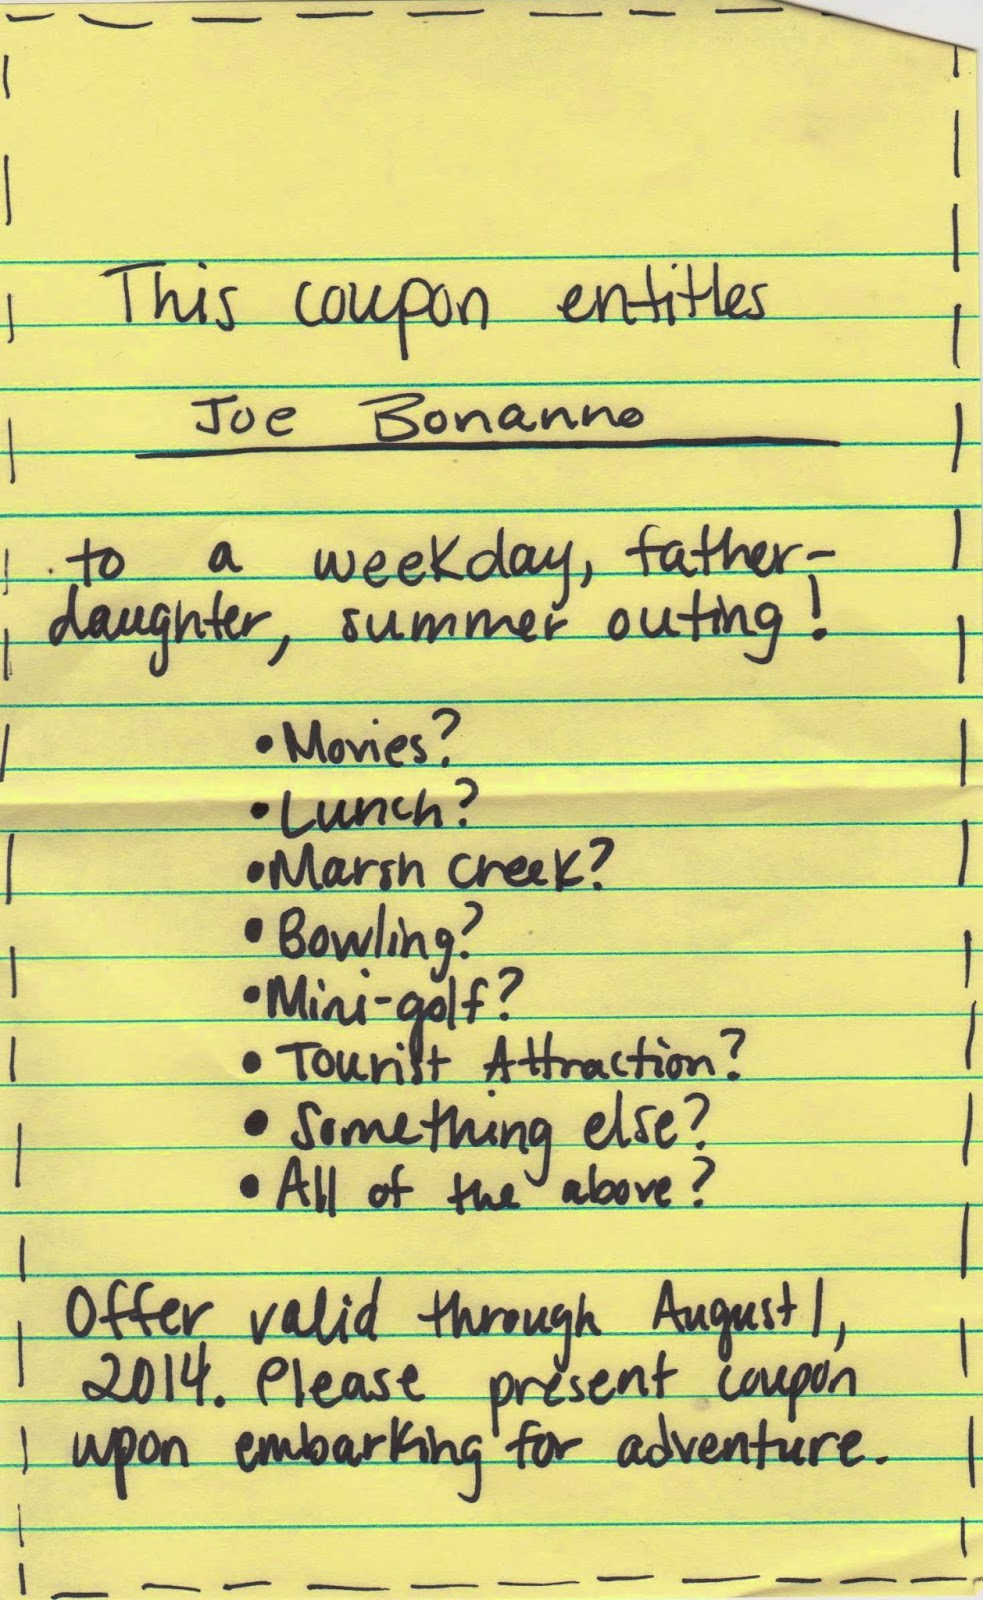 This coupon entitles
Joe Bonanno
to a weekday, father-
daughter, summer outing!
• Movies?
• Lunch?
• Marsh Creek?
• Bowling?
• Mini-golf?
• Tourist Attraction?
• Something else?
• All of the above?
Offer valid through August 1,
2014. Please present coupon
upon embarking for adventure.